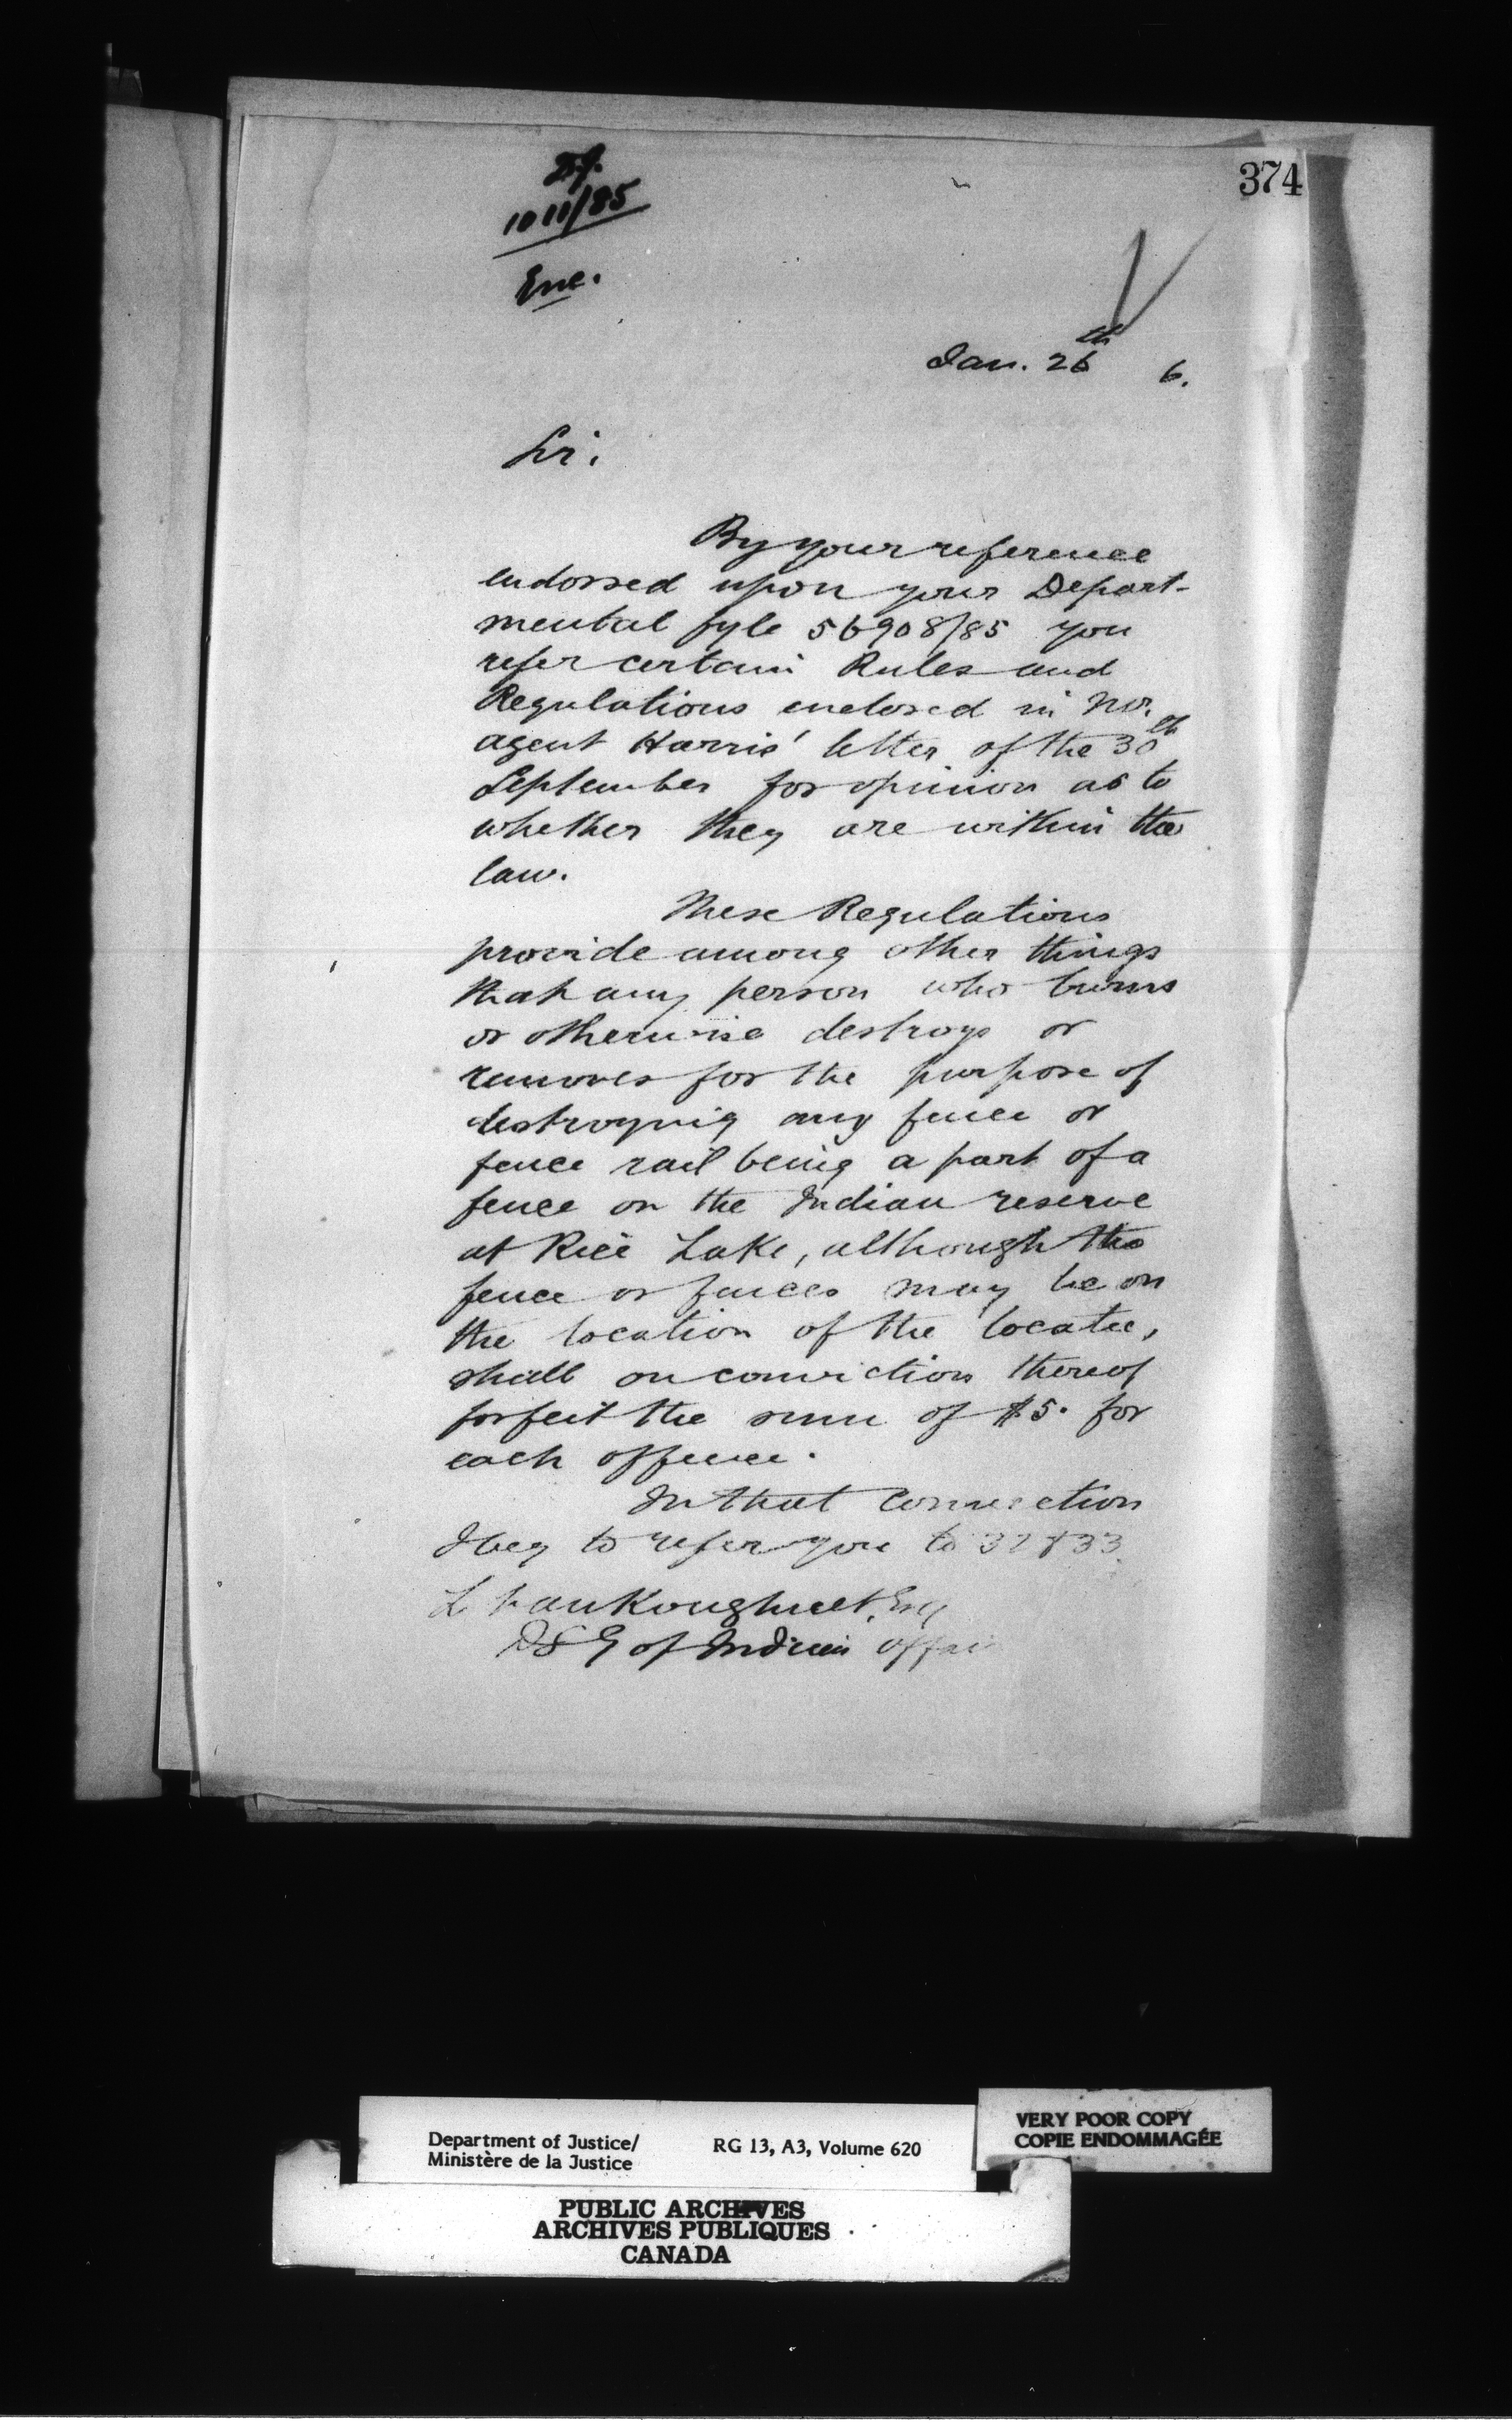 374
1011/85
Enc.
Jan. 26th 6.
Sir,
By your reference
endorsed upon your Depart-
mental fyle 56908/85 you
refer certain Rules and
Regulations enclosed in
agent Harris' letter of the 30th
September for opinion as to
whether they are within the
law.
These Regulations
provide among other things
that any person who burns
or otherwise destroys or
removes for the purpose of
destroying any fence or
fence rail being a part of a
fence on the Indian reserve
at Rice Lake, although the
fence or fences may be on
the location of the locatee,
shall on conviction thereof
forfeit the sum of $5. for
each offence.
In that connection
I beg to refer you to 32 & 33
L VanKoughnet, Esq
D S G of Indian Affai
Department of Justice/
Ministère de la Justice
RG 13, A3, Volume 620
VERY POOR COPY
COPIE ENDOMMAGÉE
PUBLIC ARCHIVES
ARCHIVES PUBLIQUES
CANADA